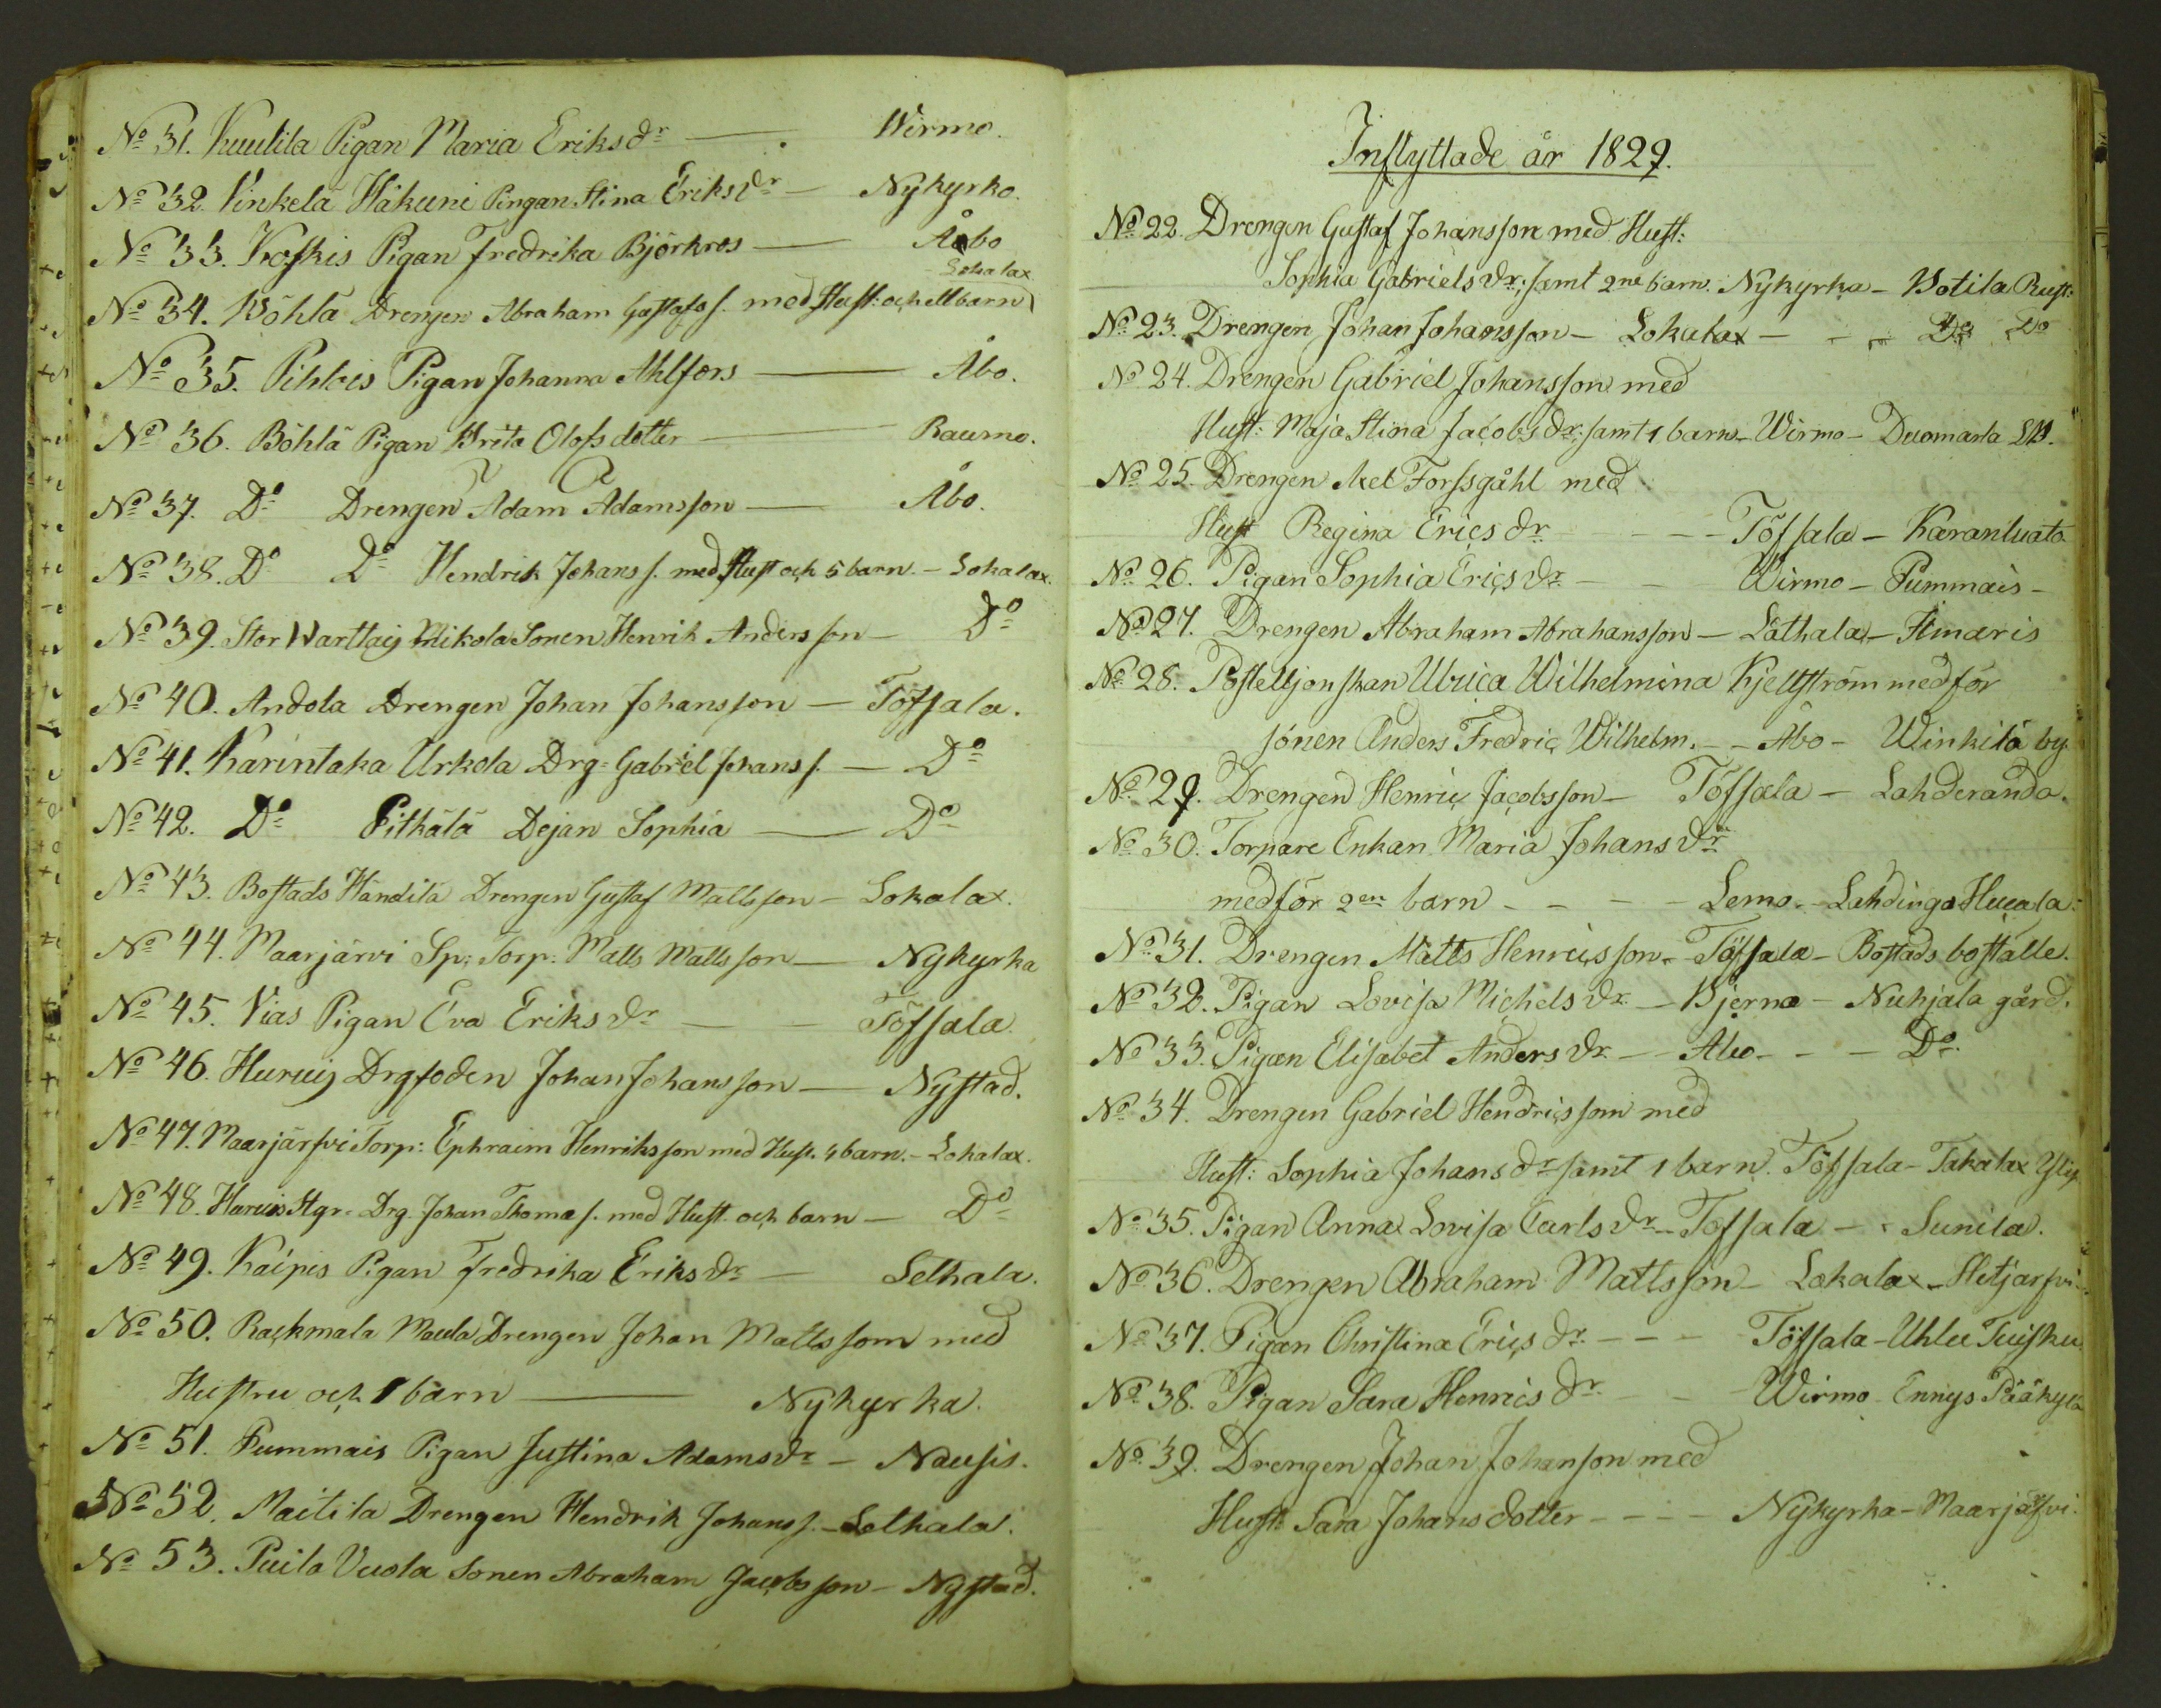 No 31. Kuutila Pigan Maria Eriksdr — Wirmo.
No 32. Vinkelä Häkuni Pingan Stina Eriksdr — Nykyrko.
No 33. Koskis Pigan Fredrika Björkros — Åbo
Lokalax
No 34. Böhlä Drengen Abraham Gustafss. med Hust: och ett barn
No 35. Pihlois Pigan Johanna Ahlfors — Åbo.
No 36. Böhlä Pigan Brita Olofsdotter — Raumo.
No 37. Do Drengen Adam Adamsson — Åbo.
No 38. Do Do Hendrik Johanss. med Hust och 5 barn. — Lokalax.
No 39. Stor Warttaij Mikola Sonen Henrik Andersson — Do
No 40. Andola Drengen Johan Johansson — Töfsala.
No 41. Karintaka Urkola Drg: Gabriel Johanss. — Do
No 42. Do Pithälä Dejan Sophia — Do
No 43. Bostads Händilä Drengen Gustaf Mattsson — Lokalax.
No 44. Maarjärvi Sp: Torp: Matts Mattsson — Nykyrka
No 45. Vias Pigan Eva Eriksdr — Töfsala.
No 46. Huruij Drgsoden Johan Johansson — Nystad.
No 47. Maarjärfvi Torp: Ephraim Henriksson med Hust. 4 barn. — Lokalax.
No 48. Haruis Stgr. Drg. Johan Thomas. med Hust. och barn — Do
No 49. Kaipis Pigan Fredrika Eriksdr — Lethala.
No 50. Rackmala Maula Drengen Johan Mattssom med
Hustru och 1 barn — Nykyrka.
No 51. Pummais Pigan Justina Adamsdr — Nousis.
No 52. Maitila Drengen Hendrik Johanss. — Lethala.
No 53. Puila Vuola Sonen Abraham Jacobsson — Nystad.
Inflyttade år 1829.
No 22. Drengen Gustaf Johansson med Hust:
Sophia Gabrielsdr: samt 2ne barn. Nykyrka — Botila Rust:
No 23. Drengen Johan Johansson — Lokalax — Do Do
No 24. Drengen Gabriel Johansson med
Hust: Maja Stina Jacobsdr: samt 1 barn — Wirmo — Duomarla
No 25. Drengen Axel Forssgåhl med
Hust Regina Ericsdr — Töfsala — Karanluato
No 26. Pigan Sophia Ericsdr — Wirmo — Pummais —
No 27. Drengen Abraham Abrahansson — Läthala — Himaris
No 28. Postelljonskan Ulrica Wilhelmina Kjellström medför
sonen Anders Fredric Wilhelm. — Åbo — Winkilä by.
No 29. Drengen Henric Jacobsson — Töfsala — Lahderanda.
No 30. Torpare Enkan Maria Johansdr
medför 2en barn — Lemo. — Lahdinga Hucala.
No 31. Drengen Matts Henricsson — Töfsala — Bostads boställe.
No 32. Pigan Lovisa Michelsdr — Bjerno — Nuhjala gård.
No 33. Pigan Elisabet Andersdr — Åbo — Do.
No 34. Drengen Gabriel Hendricsson med
Hust: Sophia Johansdr samt 1 barn. Töfsala — Takalax
No 35. Pigan Anna Lovisa Carlsdr — Töfsala — Sunila.
No 36. Drengen Abraham Mattsson — Lokalax — Hetjarfvi.
No 37. Pigan Christina Ericsdr — Töfsala — Uhlu Tuisku
No 38. Pigan Sara Henricsdr — Wirmo Ennys Pääkylä
No 39. Drengen Johan Johanson med
Hust: Sara Johansdotter — Nykyrka — Maarjärfvi.